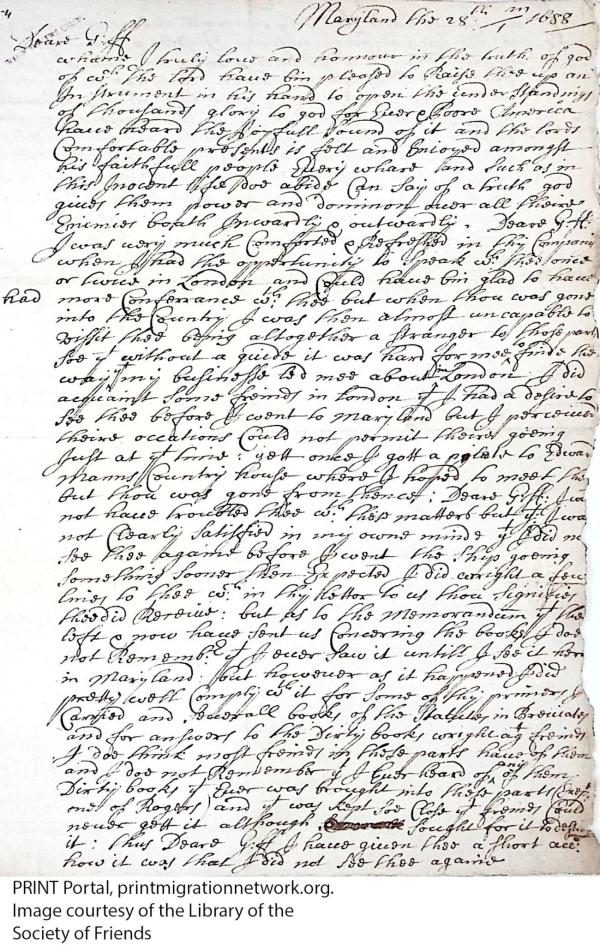 Maryland the 28th 1/m 1688
Deare G:ff
whame I truly love and honnour in the truth of god
of wch the lord have bin pleased to Raise thee up an
Instrument in his hand to open the under standings
of thousands glory to god for Ever & Poore America
have heard the Joyfull sound of it and the lords
Comfortable presents is felt and Enioyed amongst
his faithfull people Every whare and such as in
this Inocent life doe abide Can say of a truth god
gives them power and Dominion over all theire
Enemies boath Inwardly & outwardly. Deare G:ff:
I was very much Comforted & Refreshed in thy Company
when I had the oppertunity to Speak wt thee once
or twice in London and Could have bin glad to have
had more Conferrance wt thee but when thou was gone
into the Country I was then almost uncapable to
vissit thee being altogether a stranger to those parts
soe yt without a guide it was hard for mee to finde the
way my businesse led mee about in London I did
acquaint some freinds in London yt I had a desire to
see thee before I went to maryland but I perceived
theire occations Could not permit theire goeing
Just at yt time: yett once I gott a to Edward
manns Country house where I hoped to meet thee
but thou was gone from thence: Deare G:ff: I
not have troubled thee wt thes matters but yt I was
not Clearly satisfied in my owne minde yt I did n
see thee againe before I went the ship goeing
something sooner then Expected I did wright a few
lines to thee wch in thy letter to us thou signifies
thee did Receive: but as to the memorandum yt thee
left & now have sent us Concering the books I doe
not Remembr yt I ever saw it untill I see it here
in maryland: but however as it happened I did
pretty well Comply wt it for some of thy primers I
Carried and severall books of the Statutes in Breviates
and for answers to the Dirty books wright agt freinds
I doe think most freinds in these parts have of them
and I doe not Remember yt I Ever heard of any of them
Dirty books yt Ever was brought into these parts
one of Rogers) and yt was kept soe Close yt freinds Could
never gett it although sought for it to
it: thus Deare G:ff I have given thee a short acc:
how it was that I did not see thee againe
PRINT Portal, printmigrationnetwork.org.
Image courtesy of the Library of the
Society of Friends